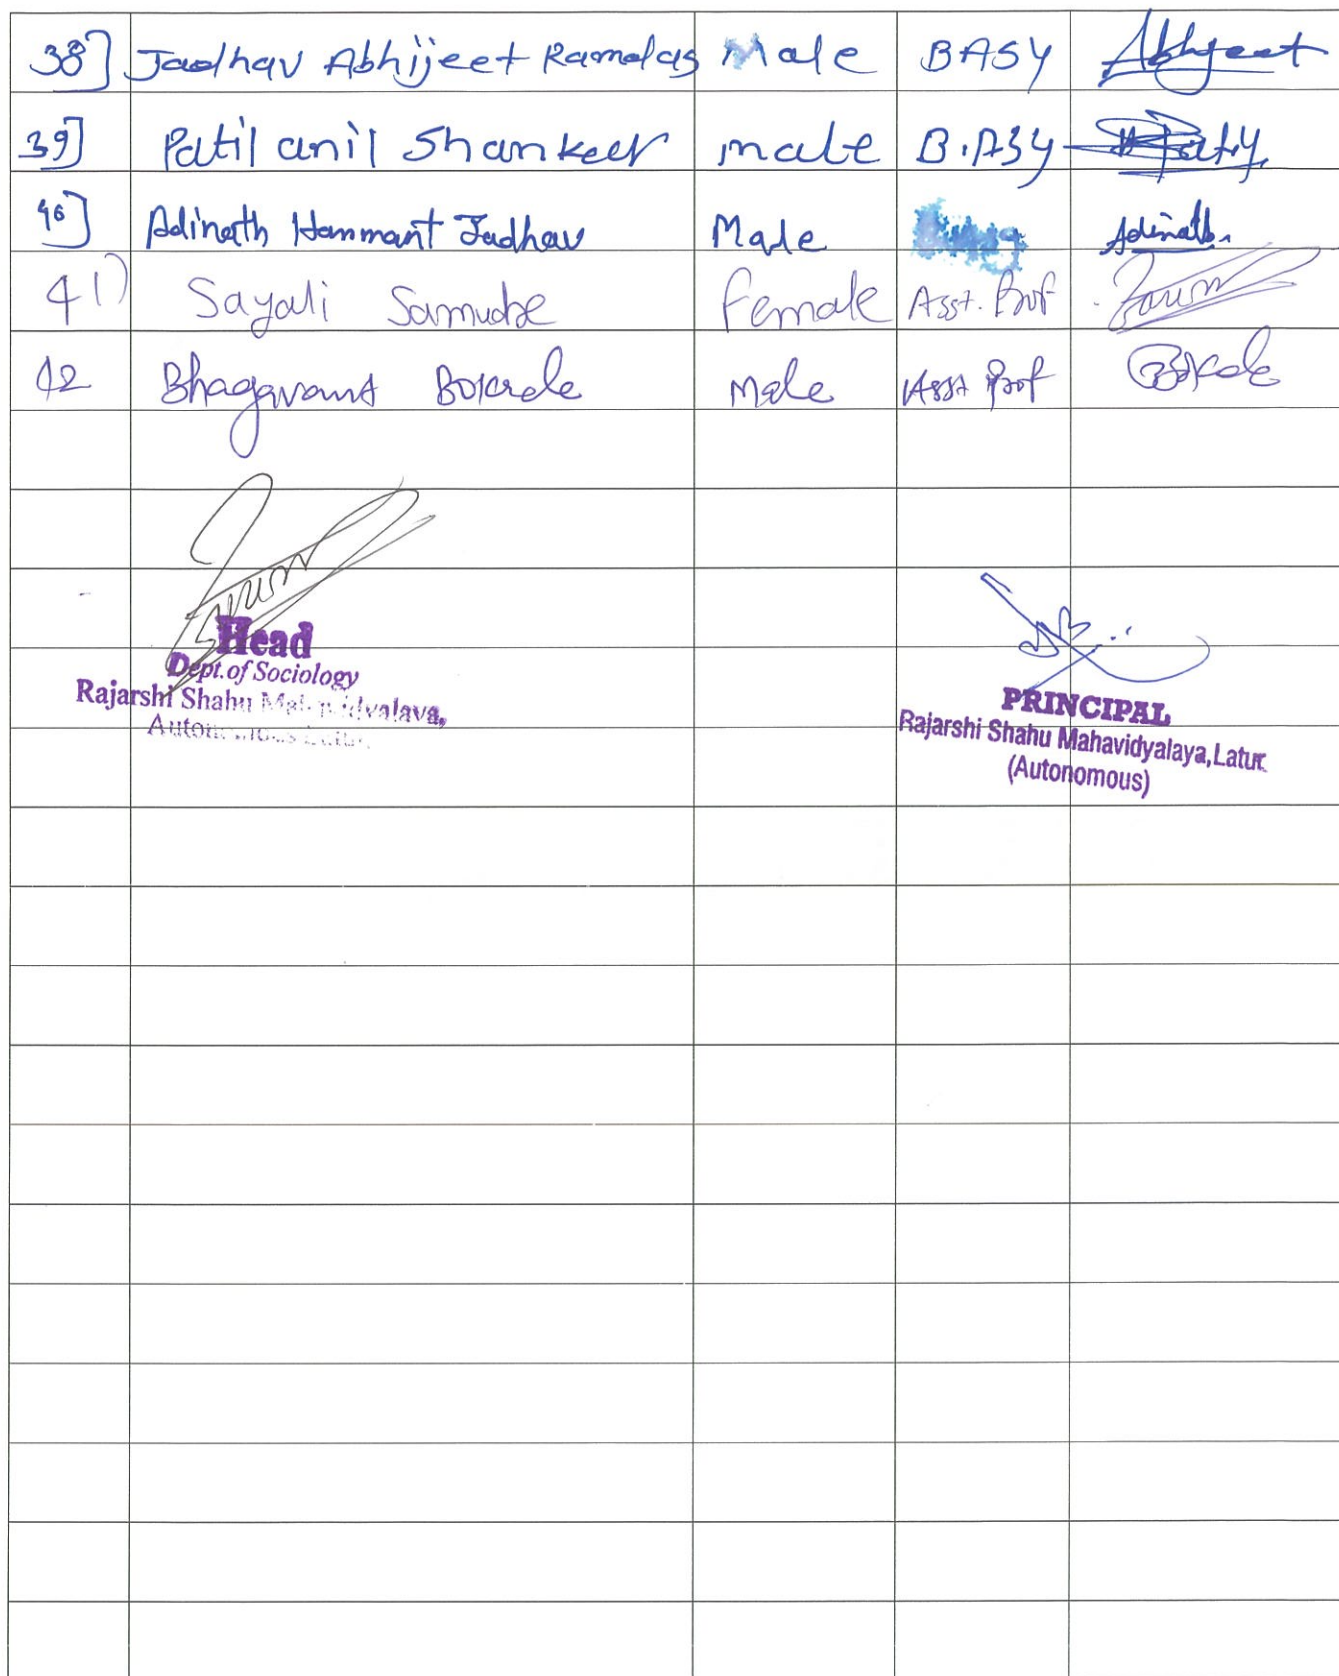 38] Jadhav Abhijeet Ramdas Male BASY Abhijeet
39] Patil anil Shankar male B.ASY
40] Adinath Hanmant Jadhav Male Adinath.
41) Sayali Samudre Female Asst. Prof
42 Bhagavant Bokade Male Asst Prof Bokade
Head
Dept. of Sociology
Rajarshi Shahu
PRINCIPAL
Rajarshi Shahu Mahavidyalaya, Latur.
(Autonomous)